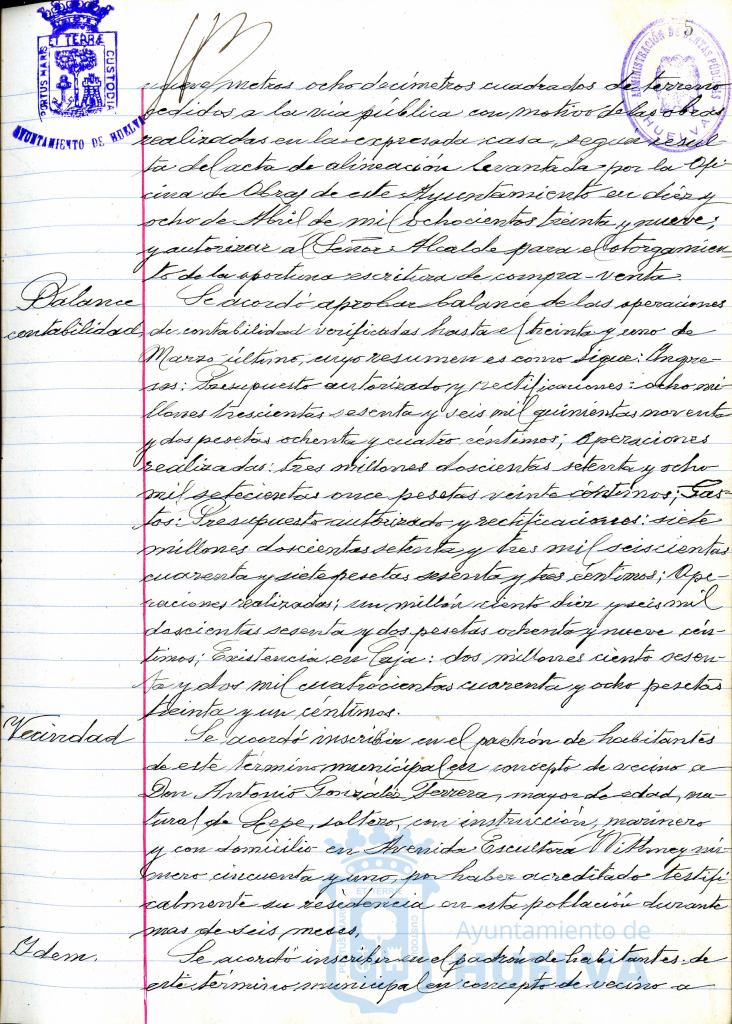 5
PORTUS MARIS ET TERRÆ CUSTODIA
AYUNTAMIENTO DE HUELVA
HUELVA
nueve metros ocho decímetros cuadrados de terreno
cedidos a la via pública con motivo de las obras
realizadas en la expresada casa, segun resul-
ta del acta de alineación levantada por la Ofi-
cina de Obras de este Ayuntamiento en diez y
ocho de Abril de mil ochocientos treinta y nueve;
y autorizar al Señor Alcalde para el otorgamien-
to de la oportuna escritura de compra-venta.
Balance
contabilidad,
Se acordó aprobar balance de las operaciones
de contabilidad verificadas hasta el treinta y uno de
Marzo último, cuyo resumen es como sigue: Ingre-
sos: Presupuesto autorizado y rectificaciones: ocho mi-
llones trescientas sesenta y seis mil quinientas noventa
y dos pesetas ochenta y cuatro céntimos; Operaciones
realizadas: tres millones doscientas setenta y ocho
mil setecientas once pesetas veinte céntimos; Gas-
tos: Presupuesto autorizado y rectificaciones: siete
millones doscientas setenta y tres mil seiscientas
cuarenta y siete pesetas sesenta y tres céntimos; Ope-
raciones realizadas; un millón ciento diez y seis mil
doscientas sesenta y dos pesetas ochenta y nueve cén-
timos; Existencia en Caja: dos millones ciento sesen-
ta y dos mil cuatrocientas cuarenta y ocho pesetas
treinta y un céntimos.
Vecindad
Se acordó inscribir en el padrón de habitantes
de este término municipal en concepto de vecino a
Don Antonio González Ferrera, mayor de edad, na-
tural de Lepe, soltero, con instrucción, marinero
y con domicilio en Avenida Escultora Withney nú-
mero cincuenta y uno, por haber acreditado testifi-
calmente su residencia en esta población durante
mas de seis meses.
Idem.
Se acordó inscribir en el padrón de habitantes de
este término municipal en concepto de vecino a
Ayuntamiento de
HUELVA